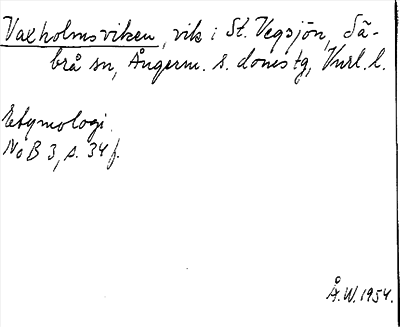 Vaxholmsviken, vik i St. Vegsjön, Sä-
brå sn, Ångerm. s. domstg, Vnrl. l.
Etymologi.
NoB 3, s. 34 f.
Å.W. 1954.